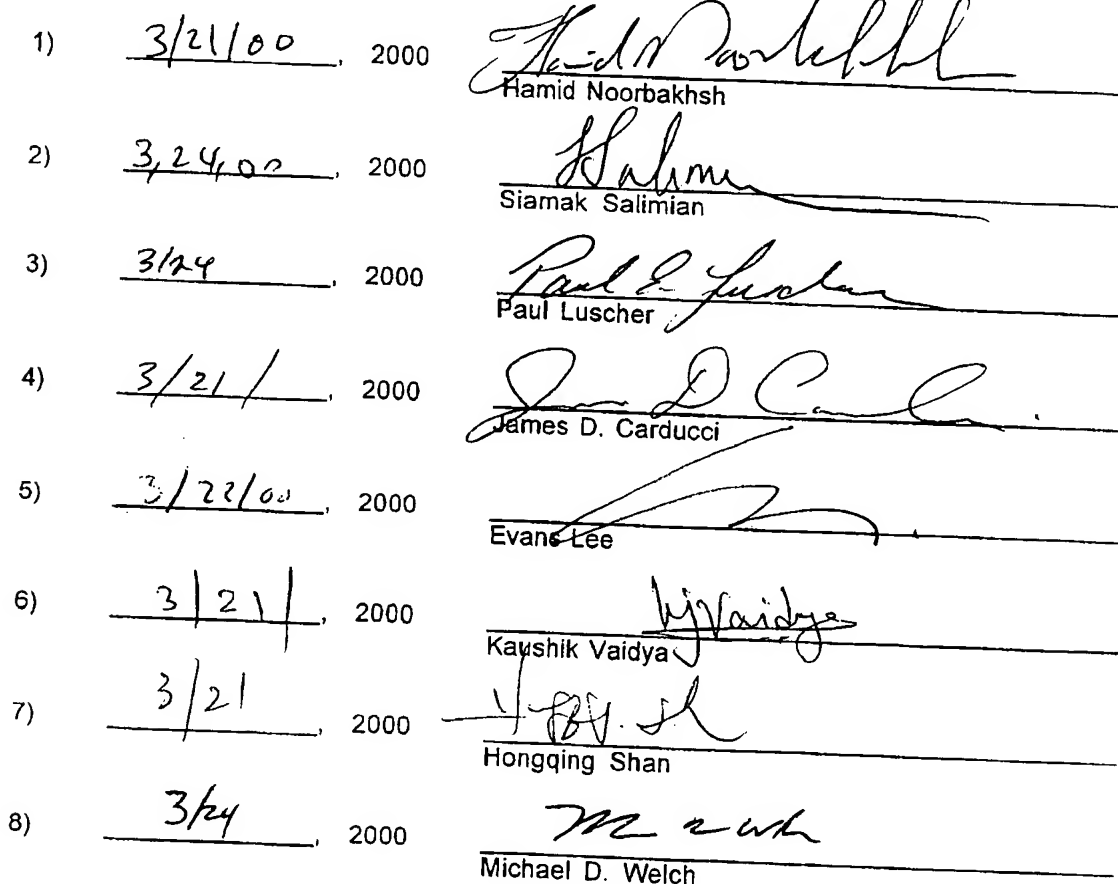 1) 3/21/00, 2000
Hamid Noorbakhsh
2) 3,24,00, 2000
Siamak Salimian
3) 3/24, 2000
Paul E. Luscher
Paul Luscher
4) 3/21/, 2000
James D. Carducci
5) 3/22/00, 2000
Evans Lee
6) 3/21/, 2000
Vaidya
Kaushik Vaidya
7) 3/21, 2000
Hongqing Shan
8) 3/24, 2000
Michael D. Welch